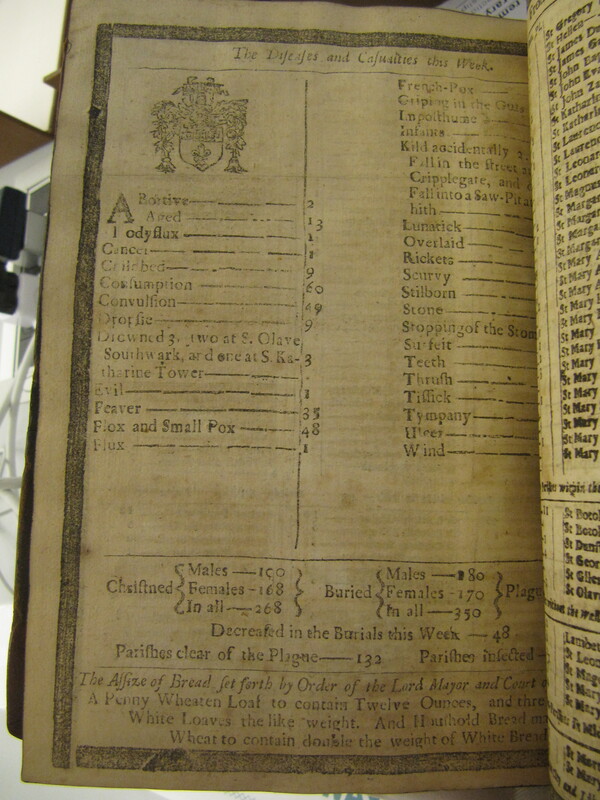 The Diseases and Casualties this Week.
ABortive 2
Aged 13
Bodyflux 1
Cancer 1
Childbed 9
Consumption 60
Convulsion
Dropsie 9
Drowned 3, two at S. Olave
Southwark, and one at S. Ka- 3
tharine Tower
Evil 1
Feaver 35
Flox and Small Pox 48
Flux 1
French-Pox
Griping in the Guts
Imposthume
Infants
Kild accidentally
Fall in the street
Cripplegate, and
Fall into a Saw-Pit a
hith
Lunatick
Overlaid
Rickets
Scurvy
Stilborn
Stone
Stopping of the Stom
Surfeit
Teeth
Thrush
Tissick
Tympany
Ulcer
Wind
Christned { Males
Females - 168
In all - 268 }
Buried { Males - 180
Females - 170
In all - 350 }
Plag
Decreased in the Burials this Week - 48
Parishes clear of the Plague - 132 Parishes infected
The Assize of Bread set forth by Order of the Lord Mayor and Court o
A Penny Wheaten Loaf to contain Twelve Ounces, and thre
White Loaves the like weight. And Houshold Bread ma
Wheat to contain double the weight of White Bread
St Gregory
St Hellen
St James Du
St James G
St John Bap
St John Eva
St John Za
St Katharin
St Katharin
St Lawrenc
St Lawrenc
St Leonar
St Leonar
St Magnus
St Margar
St Margar
St Margar
St Margar
St Mary A
St Mary A
St Mary
St Mary
St Mary
St Mary
St Mary
St Mary
St Mary
St Mary
St Mary
within the
St Botol
St Botol
St Dunst
St Geor
St Giles
St Olave
without the Wall
Lambet
St Leon
St Mag
St Mary
St Mary